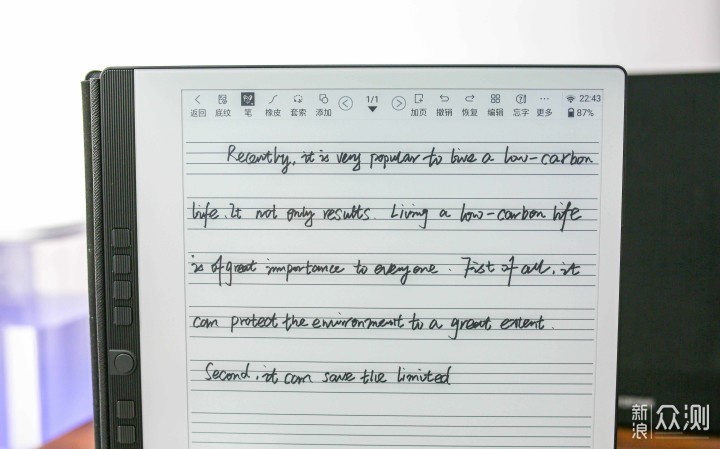 返回 底纹 笔 橡皮 套索 添加 1/1 加页 撤销 恢复 编辑 忘字 更多 22:43 87%
Recently, it is very popular to live a low-carbon
life. It not only results. Living a low-carbon life
is of great importance to everyone. First of all, it
can protect the environment to a great extent.
Second, it can save the limited
新浪 众测